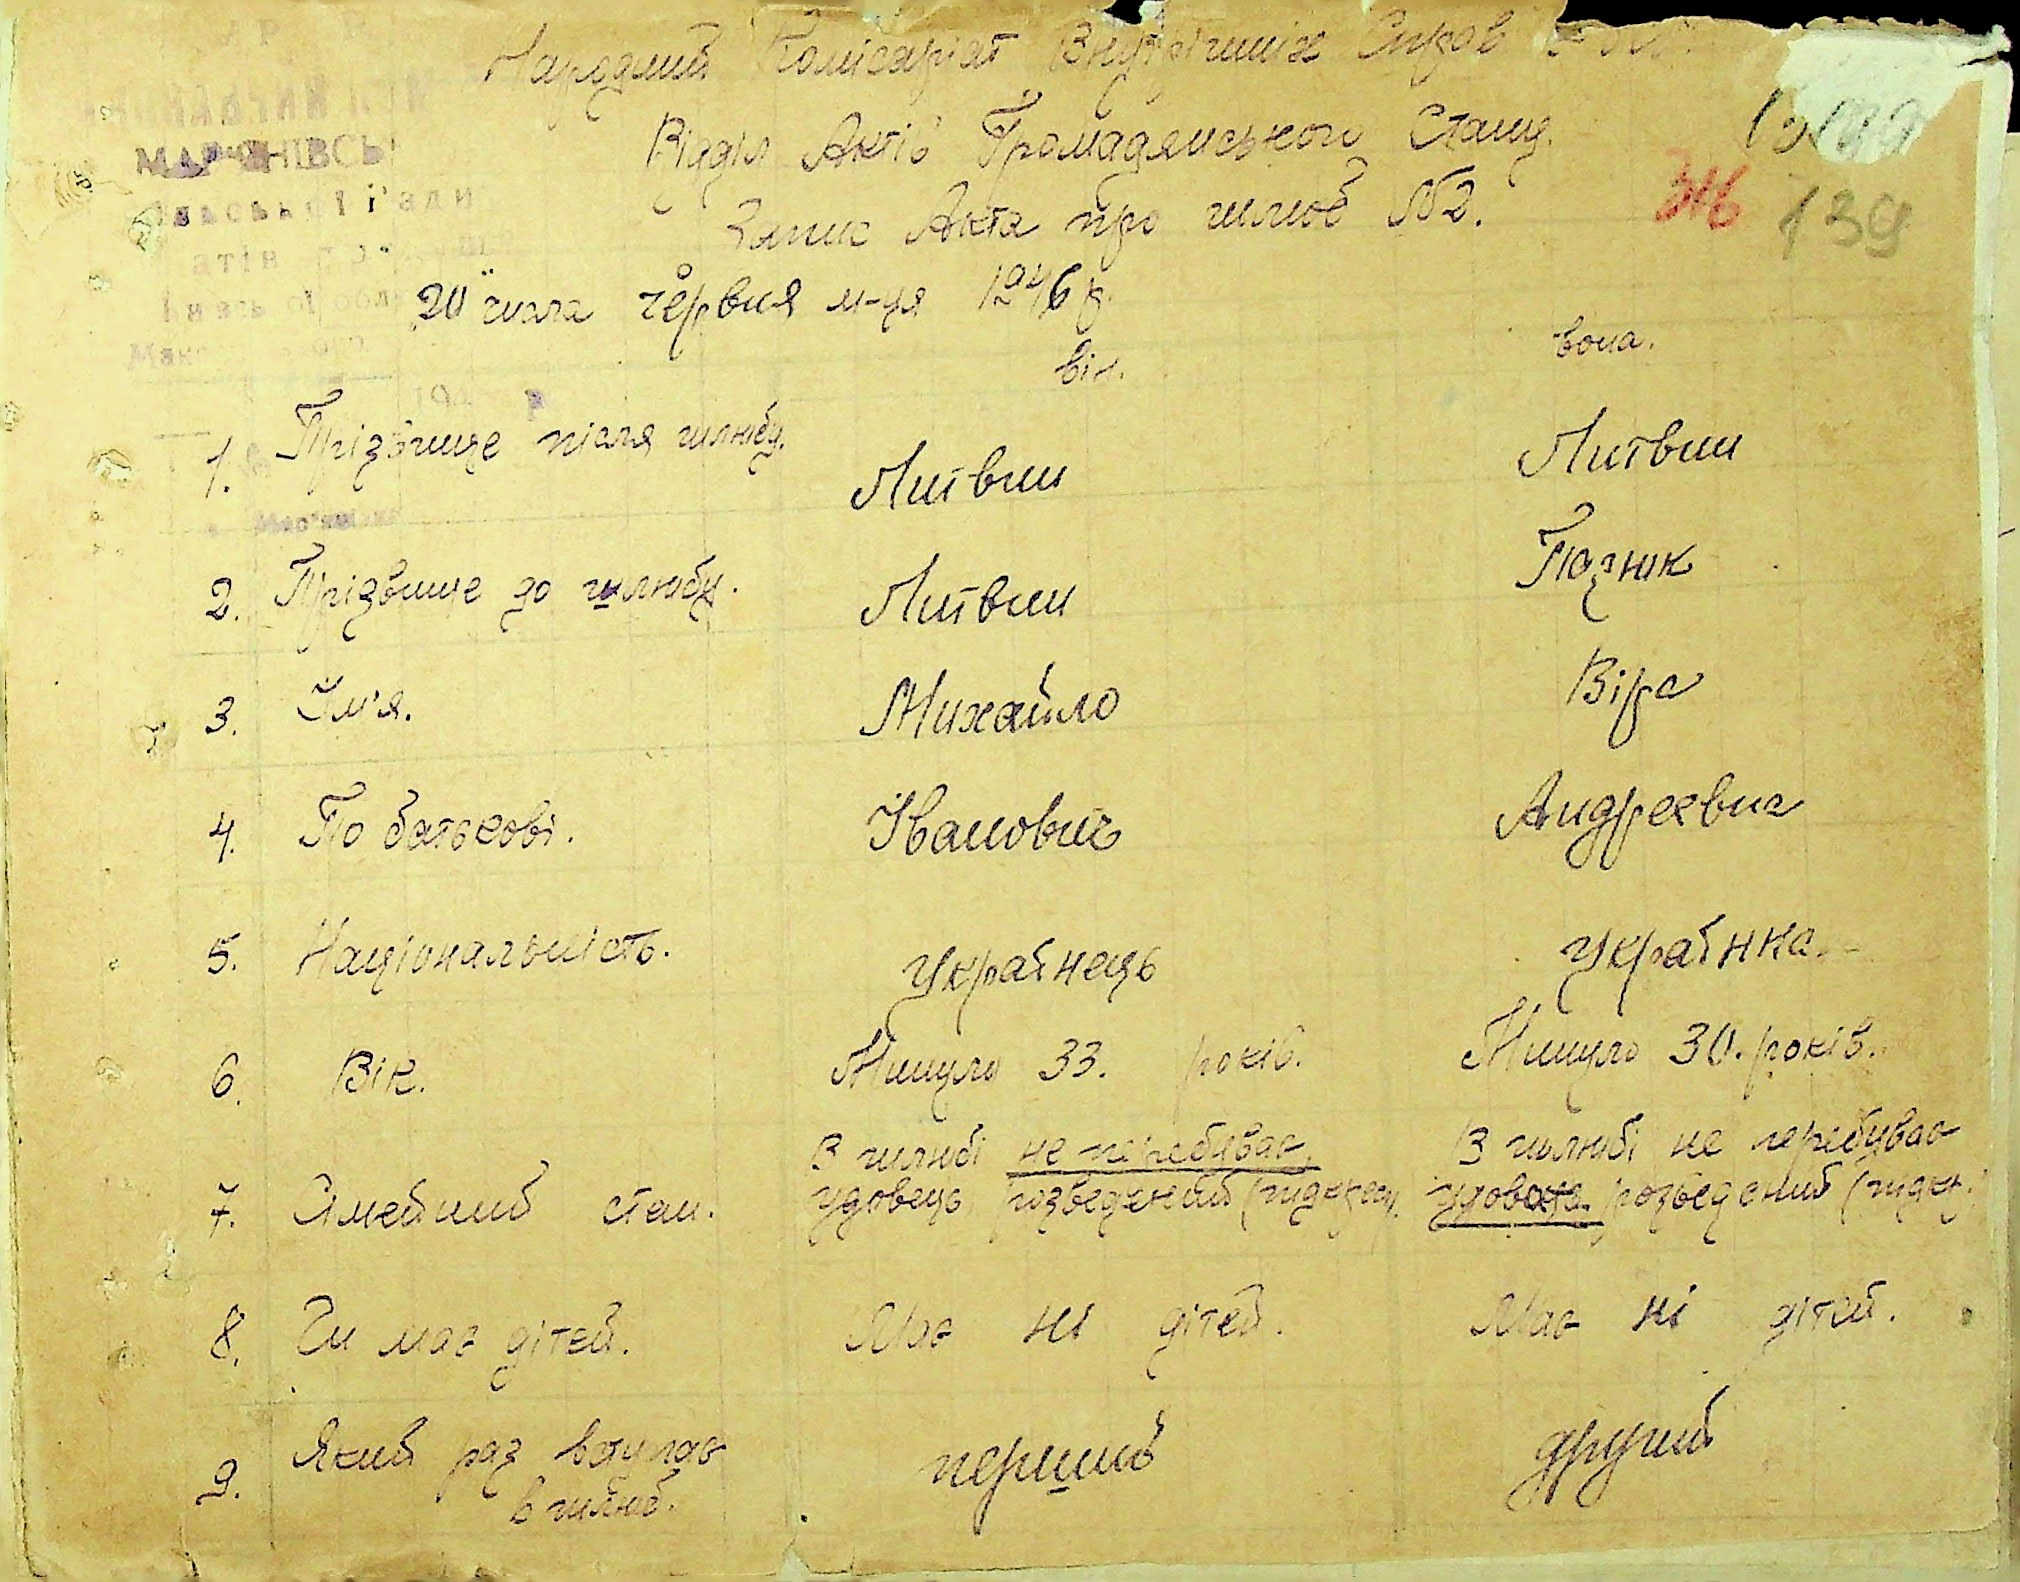 Народний Комісаріат Внутрішніх Справ
Відділ Актів Громадянського Стану.
Запис Акта про шлюб №2.
139
МАР'ЯНІВСЬ
20 числа червня м-ця 1946 р.
він. вона.
1. Прізвище після шлюбу. Литвин Литвин
2. Прізвище до шлюбу. Литвин
3. Ім'я. Михайло Віра
4. По батькові. Іванович Андреевич
5. Національність. Українець Українка.
6. Вік. Минуло 33. років. Минуло 30. років.
7. Сімейний стан. В шлюбі не перебуває, удовець, розведений В шлюбі не перебуває удова розведений
8. Чи має дітей. Має ні дітей. Має ні дітей.
9. Який раз вступає перший другий
в шлюб.